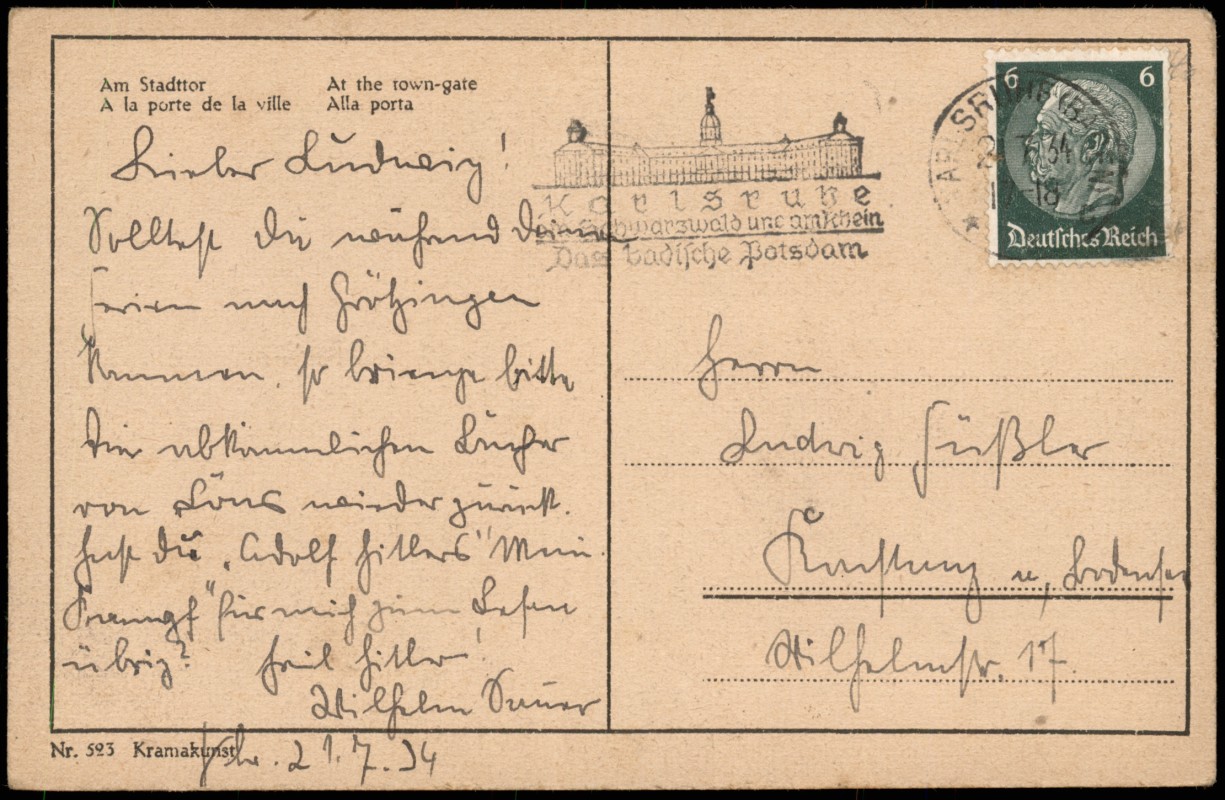 Am Stadttor
At the town-gate
A la porte de la ville
Alla porta
Lieber Ludwig!
Solltest du während Deiner
Ferien nach Grötzingen
kommen, so bringe bitte
die abkömmlichen Bücher
von Löns wieder zurück.
Hast du „Adolf Hitlers" Mein
Kampf" für mich zum Lesen
übrig? Heil Hitler!
Wilhelm Sauer
Nr. 523 Kramakunst
Khe. 21.7.34
Karlsruhe
Schwarzwald und am Rhein
Das badische Potsdam
KARLSRUHE (BADEN)
2 7.34
-18
6 6
Deutsches Reich
Herrn
Ludwig Süßler
Konstanz a. Bodensee
Wilhelmstr. 17.